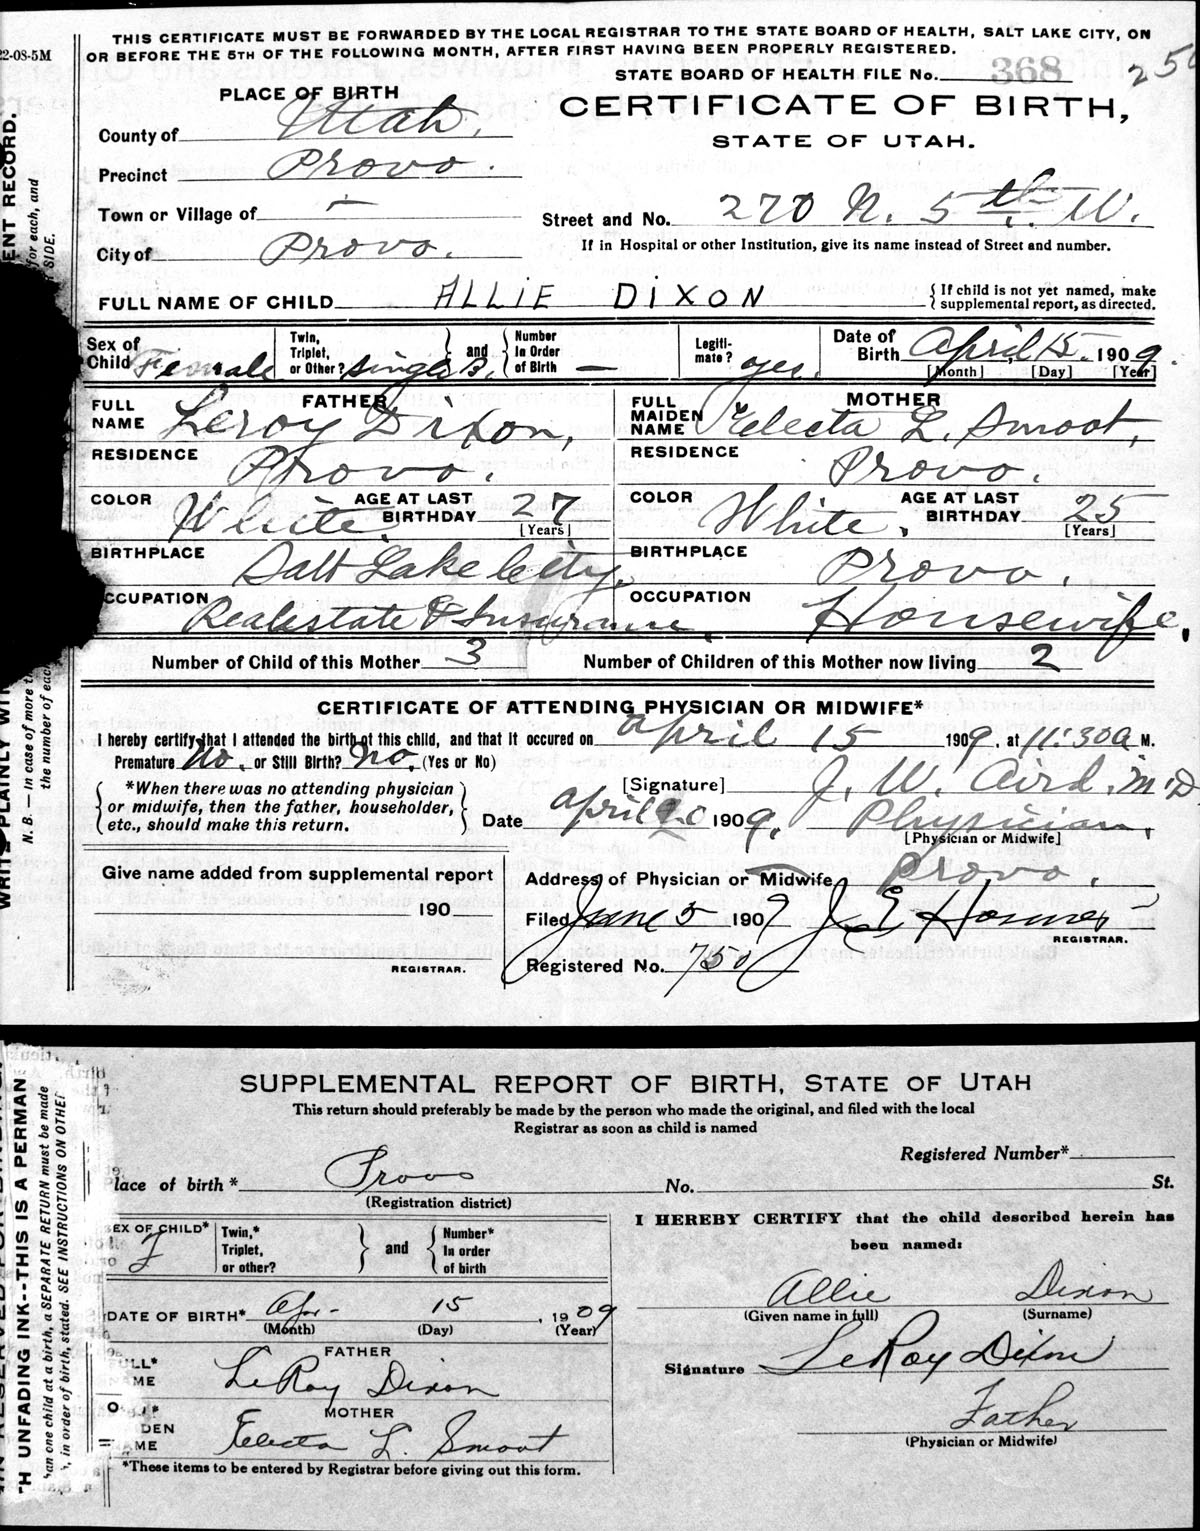 22-08-5M
THIS CERTIFICATE MUST BE FORWARDED BY THE LOCAL REGISTRAR TO THE STATE BOARD OF HEALTH, SALT LAKE CITY, ON
OR BEFORE THE 5TH OF THE FOLLOWING MONTH, AFTER FIRST HAVING BEEN PROPERLY REGISTERED.
STATE BOARD OF HEALTH FILE No. 368 250
PLACE OF BIRTH
CERTIFICATE OF BIRTH,
STATE OF UTAH.
County of Utah.
Precinct Provo.
Town or Village of —
Street and No. 270 N. 5th W.
City of Provo.
If in Hospital or other Institution, give its name instead of Street and number.
FULL NAME OF CHILD ALLIE DIXON { If child is not yet named, make
supplemental report, as directed.
Sex of Child Female
Twin, Triplet, or Other? single } and { Number In Order of Birth —
Legiti-mate? yes.
Date of Birth April 15. 1909.
[Month] [Day] [Year]
FATHER
FULL NAME Leroy Dixon,
MOTHER
FULL MAIDEN NAME Electa L. Smoot,
RESIDENCE Provo.
RESIDENCE Provo.
COLOR White. AGE AT LAST BIRTHDAY 27 [Years]
COLOR White, AGE AT LAST BIRTHDAY 25 [Years]
BIRTHPLACE Salt Lake City,
BIRTHPLACE Provo.
CCUPATION Realestate & Insurance,
OCCUPATION Housewife,
Number of Child of this Mother 3 Number of Children of this Mother now living 2
CERTIFICATE OF ATTENDING PHYSICIAN OR MIDWIFE*
I hereby certify that I attended the birth of this child, and that it occured on April 15 1909, at 11:30 a M.
Premature No, or Still Birth? No, (Yes or No)
{ *When there was no attending physician
or midwife, then the father, householder,
etc., should make this return. }
[Signature] J. W. Aird. M.D
Date April 1909, Physician,
[Physician or Midwife]
Give name added from supplemental report
190
REGISTRAR.
Address of Physician or Midwife Provo.
Filed June 5 1909 J E
REGISTRAR.
Registered No. 750
ENT RECORD.
for each, and
SIDE.
WRITE PLAINLY WIT
N. B. — In case of more t
the number of each
SUPPLEMENTAL REPORT OF BIRTH, STATE OF UTAH
This return should preferably be made by the person who made the original, and filed with the local
Registrar as soon as child is named
Registered Number*
lace of birth* Provo No. St.
(Registration district)
EX OF CHILD* F
Twin,* Triplet, or other? } and { Number* In order of birth
DATE OF BIRTH* Apr- 15, 1909
(Month) (Day) (Year)
FATHER
ULL* ME LeRoy Dixon
MOTHER
DEN AME Electa L. Smoot
*These items to be entered by Registrar before giving out this form.
I HEREBY CERTIFY that the child described herein has
been named:
Allie Dixon
(Given name in full) (Surname)
Signature LeRoy Dixon
Father
(Physician or Midwife)
H UNFADING INK--THIS IS A PERMAN
an one child at a birth, a SEPARATE RETURN must be made
, in order of birth, stated. SEE INSTRUCTIONS ON OTHER